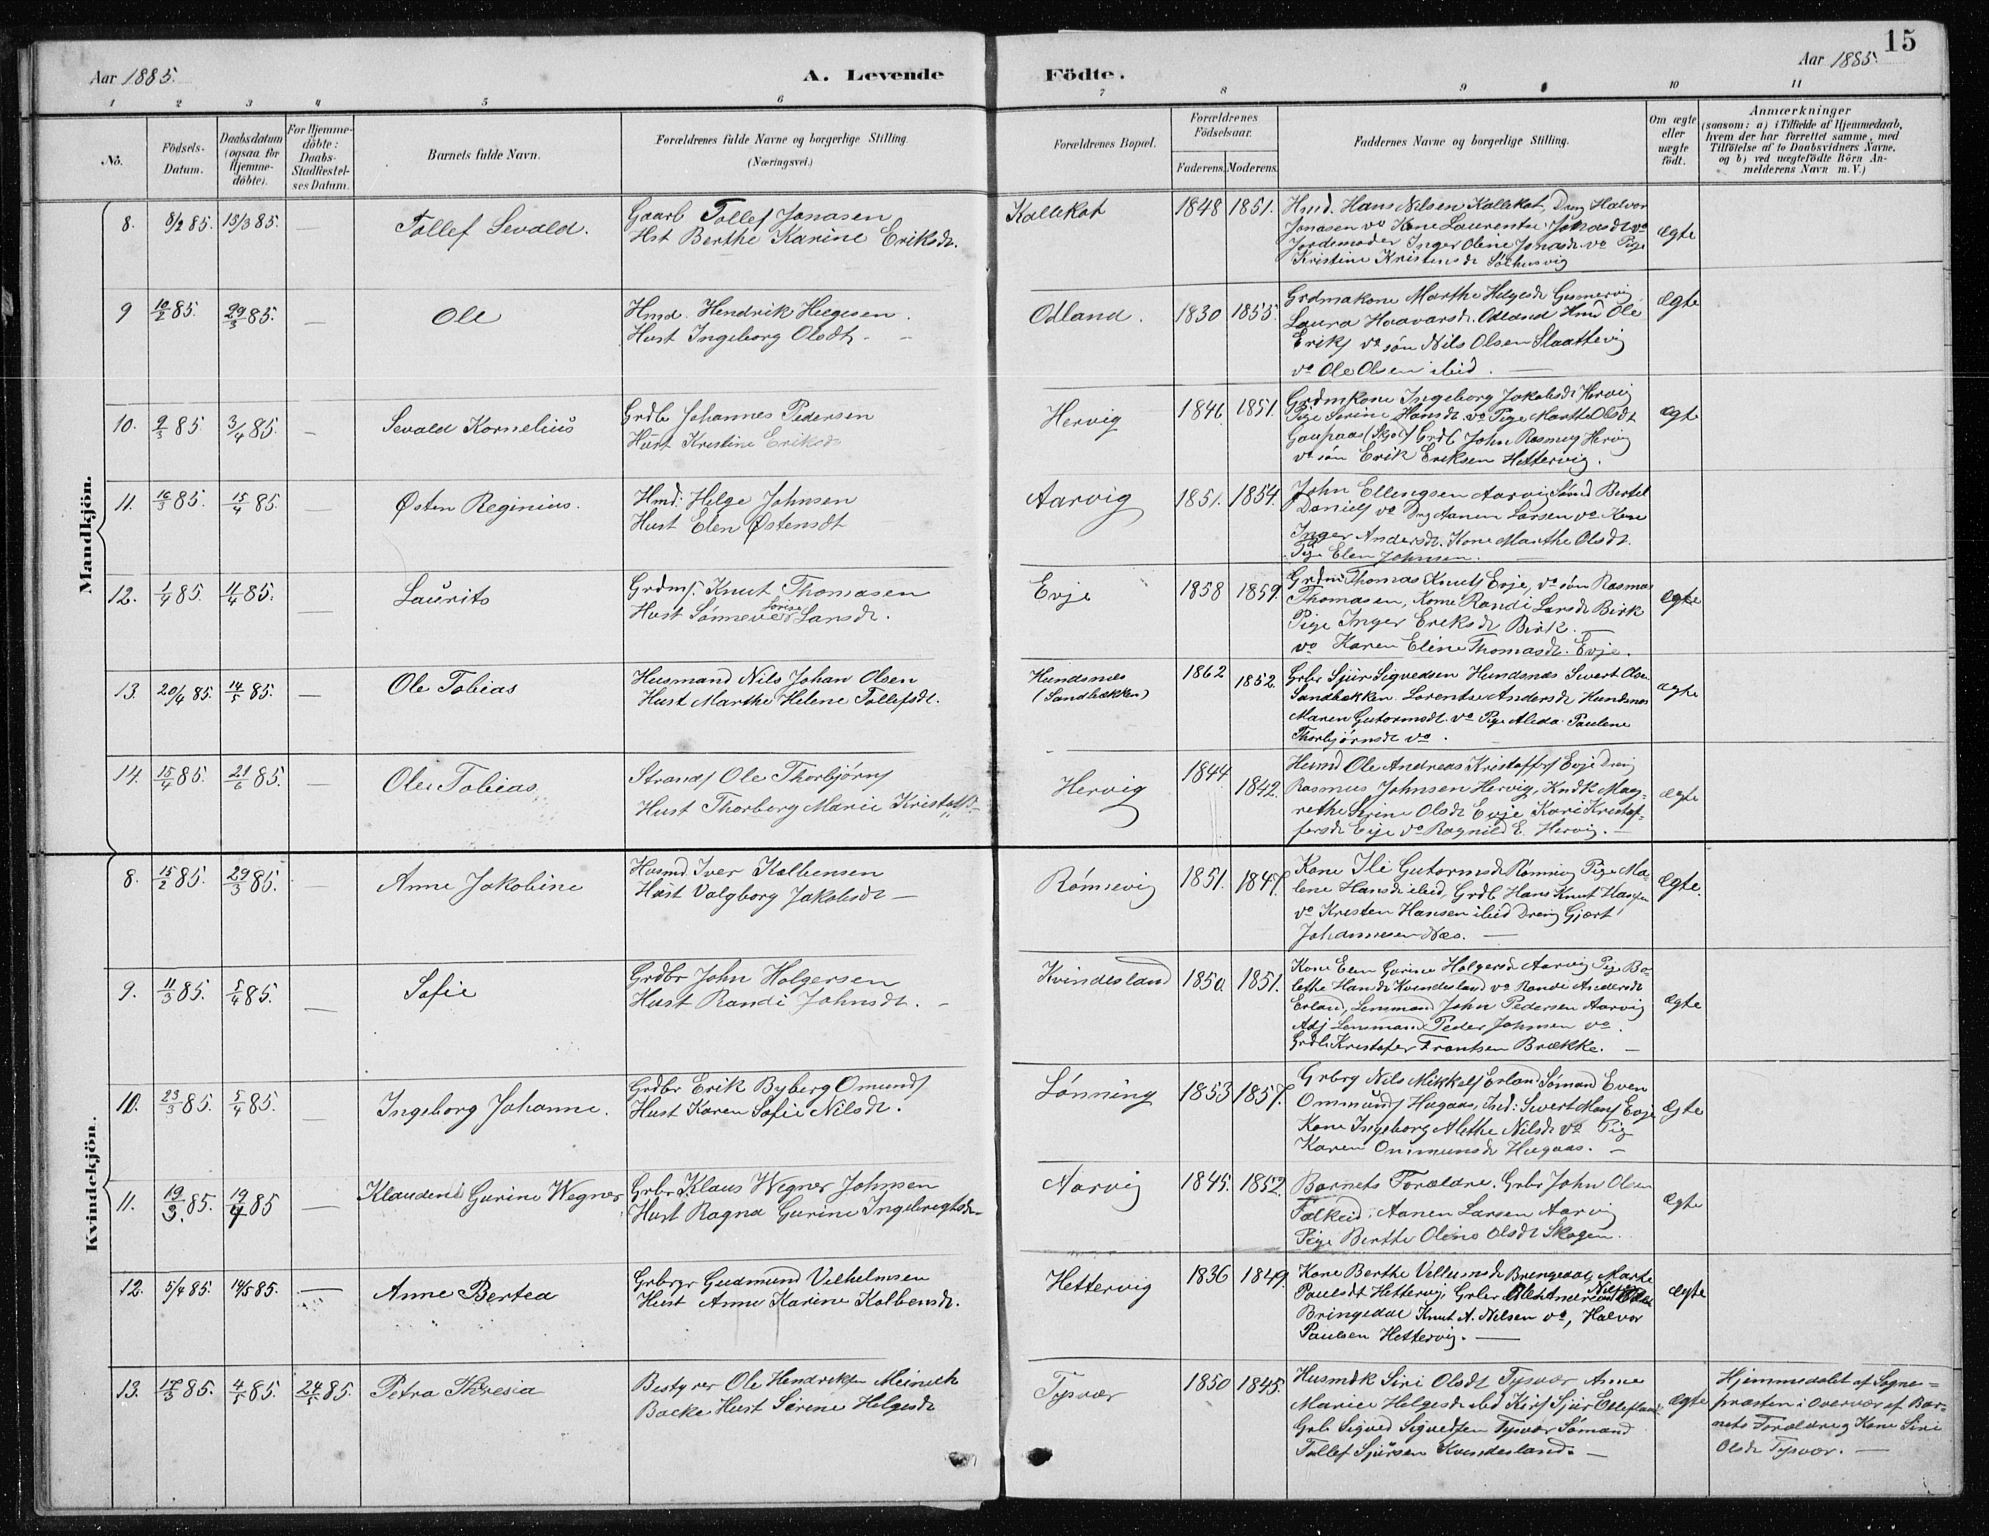 15
Aar 1885.
A. Levende
Födte.
Aar 1885.
1 2 3 4 5 6 7 8 9 10 11
No.
Födsels-Datum.
Daabsdatum (ogsaa for Hjemme-döbte).
For Hjemme-döbte: Daabs-Stadfæstel-ses Datum.
Barnets fulde Navn.
Forældrenes fulde Navne og borgerlige Stilling. (Næringsvei.)
Forældrenes Bopæl.
Forældrenes Födselsaar.
Faderens. Moderens.
Faddernes Navne og borgerlige Stilling.
Om ægte eller uægte födt.
Anmærkninger
(saasom: a) i Tilfælde af Hjemmedaab,
hvem der har forrettet samme, med
Tilföielse af to Daabsvidners Navne.
og b) ved uægtefödte Börn An-
melderens Navn m. V.)
Mandkjön.
8. 8/2 85. 15/3 85. — Tollef Sevald.
Gaarb Tollef Jonasen
Hst Berthe Karine Eriksdt.
Kallekot 1848 1851.
Hmd. Hans Nilsen Kallekot, Dreng Halvor
Jonasen vo Kone Laurentse Jonasdt vo
Jordemoder Inger Oline Jonasdt vo Pige
Kristine Kristensdt
ægte
9 10/2 85. 29/3 85. — Ole
Hmd. Hendrik Helgesen.
Hust Ingeborg Olsdt. —
Odland. 1830 1855.
Grdmakone Marthe Helgesdt
Laura Haavarsdt. Odland Hmd Ole
Eriks vo søn Nils Olsen Slaattevig
vo Ole Olsen ibid. —
Ægte
10. 9/3 85 3/4 85. — Sevald Kornelius
Grdb Johannes Pedersen
Hust Kristine Eriksdt
Hervig 1846 1851.
Grdmkone Ingeborg Jakobsdt Hervig
Pige Serine Hansdt. vo Pige Marthe Olsdt
Gaupaas (Skjol) Grdb John Rasmus Hervig
vo søn Erik Eriksen Hettervig.
Ægte
11. 16/3 85. 15/4 85. — Østen Reginius.
Hmd: Helge Johnsen
Hust Elen Østensdt
Aarvig 1851. 1854.
John Ellingsen Aarvig Sømd Bertel
Daniels vo Dreng Aanen Larsen vo Kone
Inger Andersdt. Kone Marthe Olsdt.
Pige Elen Johnsen. —
12. 1/4 85. 11/4 85. — Laurits
Grdms. Knut Thomasen
Hust Sønneve Larsdt.
Evje 1858 1859.
Grdm Thomas Knuts Evje, vo søn Rasmus
Thomasen, Kone Randi Larsdt Birk
Pige Inger Eriksdt Birk.
vo Karen Eline Thomasdt. Evje.
Ægte
13. 20/4 85. 14/5 85. — Ole Tobias
Husmand Nils Johan Olsen
Hust Marthe Helene Tollefsdt.
Hundsnes
(Sandbækken) 1862 1852.
Grbr Sjur Sigvedsen Hundsnæs Sivert Olsen
Sandbækken. Lorentse Andersdt Hundsnes
Maren Gutormsdt. vo Pige Alida Pauline
Thorbjørnsdt vo.
ægte
14. 15/4 85. 21/6 85. — Ole Tobias
Strands Ole Thorbjørns
Hust Thorborg Marie Kristoff—
Hervig 1844 1842.
Husmd Ole Andreas Kristoffs Evje Dreng
Rasmus Johnsen Hervig, Kndk Mag-
rethe Serine Olsdt Evje, Kari Kristof-
fersdt Evje vo Ragnild E. Hervig. —
ægte
Kvindekjön.
8. 15/2 85. 29/3 85. — Anne Jakobine
Husmd. Iver Kolbensen
Hust Valgborg Jakobsdt —
Rømsevig 1851. 1847.
Kone Ili Gutormsdt Rømsevig Pige Ma-
lene Hansdt ibid, Grdb Hans Knut Hansen
vo Kristen Hansen ibid Dreng Gjert
Johannesen Næs. —
Ægte.
9. 11/3 85. 5/4 85. — Sofie
Grdbr John Holgersen
Hust Randi Johnsdt. —
Kvindesland 1850. 1851.
Kone Elen Gurine Holgersdt Aarvig Pige Bo-
lethe Hansdt Kvindesland vo Randi Andersdt
Erland, Lensmand John Pedersen Aarvig
Adj Lensmand Peder Johnsen vo.
Grdb Kristofer Frantsen Brække. —
Ægte
10. 23/3 85. 5/4 85. — Ingeborg Johanne.
Grdbr Erik Byberg Omunds
Hust Karen Sofie Nilsdt.
Lønning 1853 1857.
Grbrg Nils Mikkels Erland Sømand Even
Ommunds Hagaas, Ind: Sivert Mons Evje
Kone Ingeborg Alethe Nilsdt vo Pig
Karen Ommunsdt Hagaas. —
Ægte
11. 19/3. 85. 19/4 85 — Klaudene Gurine Wegner
Grbr Klaus Wegner Johnsen
Hust Ragna Gurine Ingebregtsdt—
Aarvig 1845. 1852.
Barnets Forældre. Grbr John Olsen
Falkeid Aanen Larsen Aarvig
Pige Berthe Oline Olsdt Skogen.
Ægte
12. 5/4 85. 14/5 85. — Anne Bertea
Grbrgr Gudmund Vilhelmsen
Hust Anne Karine Kolbensdt.
Hettervig 1836 1849.
Kone Berthe Vellumsdt Bringedal, Marte
Paulsdt Hettervig Grbr
Bringedal Knut A. Nilsen vo, Halvor
Paulsen Hettervig. —
Ægte
13. 17/3 85. 4/5 85. 24/5 85. Petra Theresia
Bestyrer Ole Hendriksen Meinich
Backe Hust Serine Helgesdt
Tysvær 1850 1845.
Husmdk Siri Olsdt Tysvær Anne
Marie Helgesdt ibid Kirs Sjur
Grb Sigved Sigvedsen Tysvær Sømand
Tollef Sjursen Kvindesland. —
Ægte
Hjemmedøbt af Sogne-
præsten i Overvær af Bar-
nets Forældre og Kone Siri
Olsdt Tysvær. —